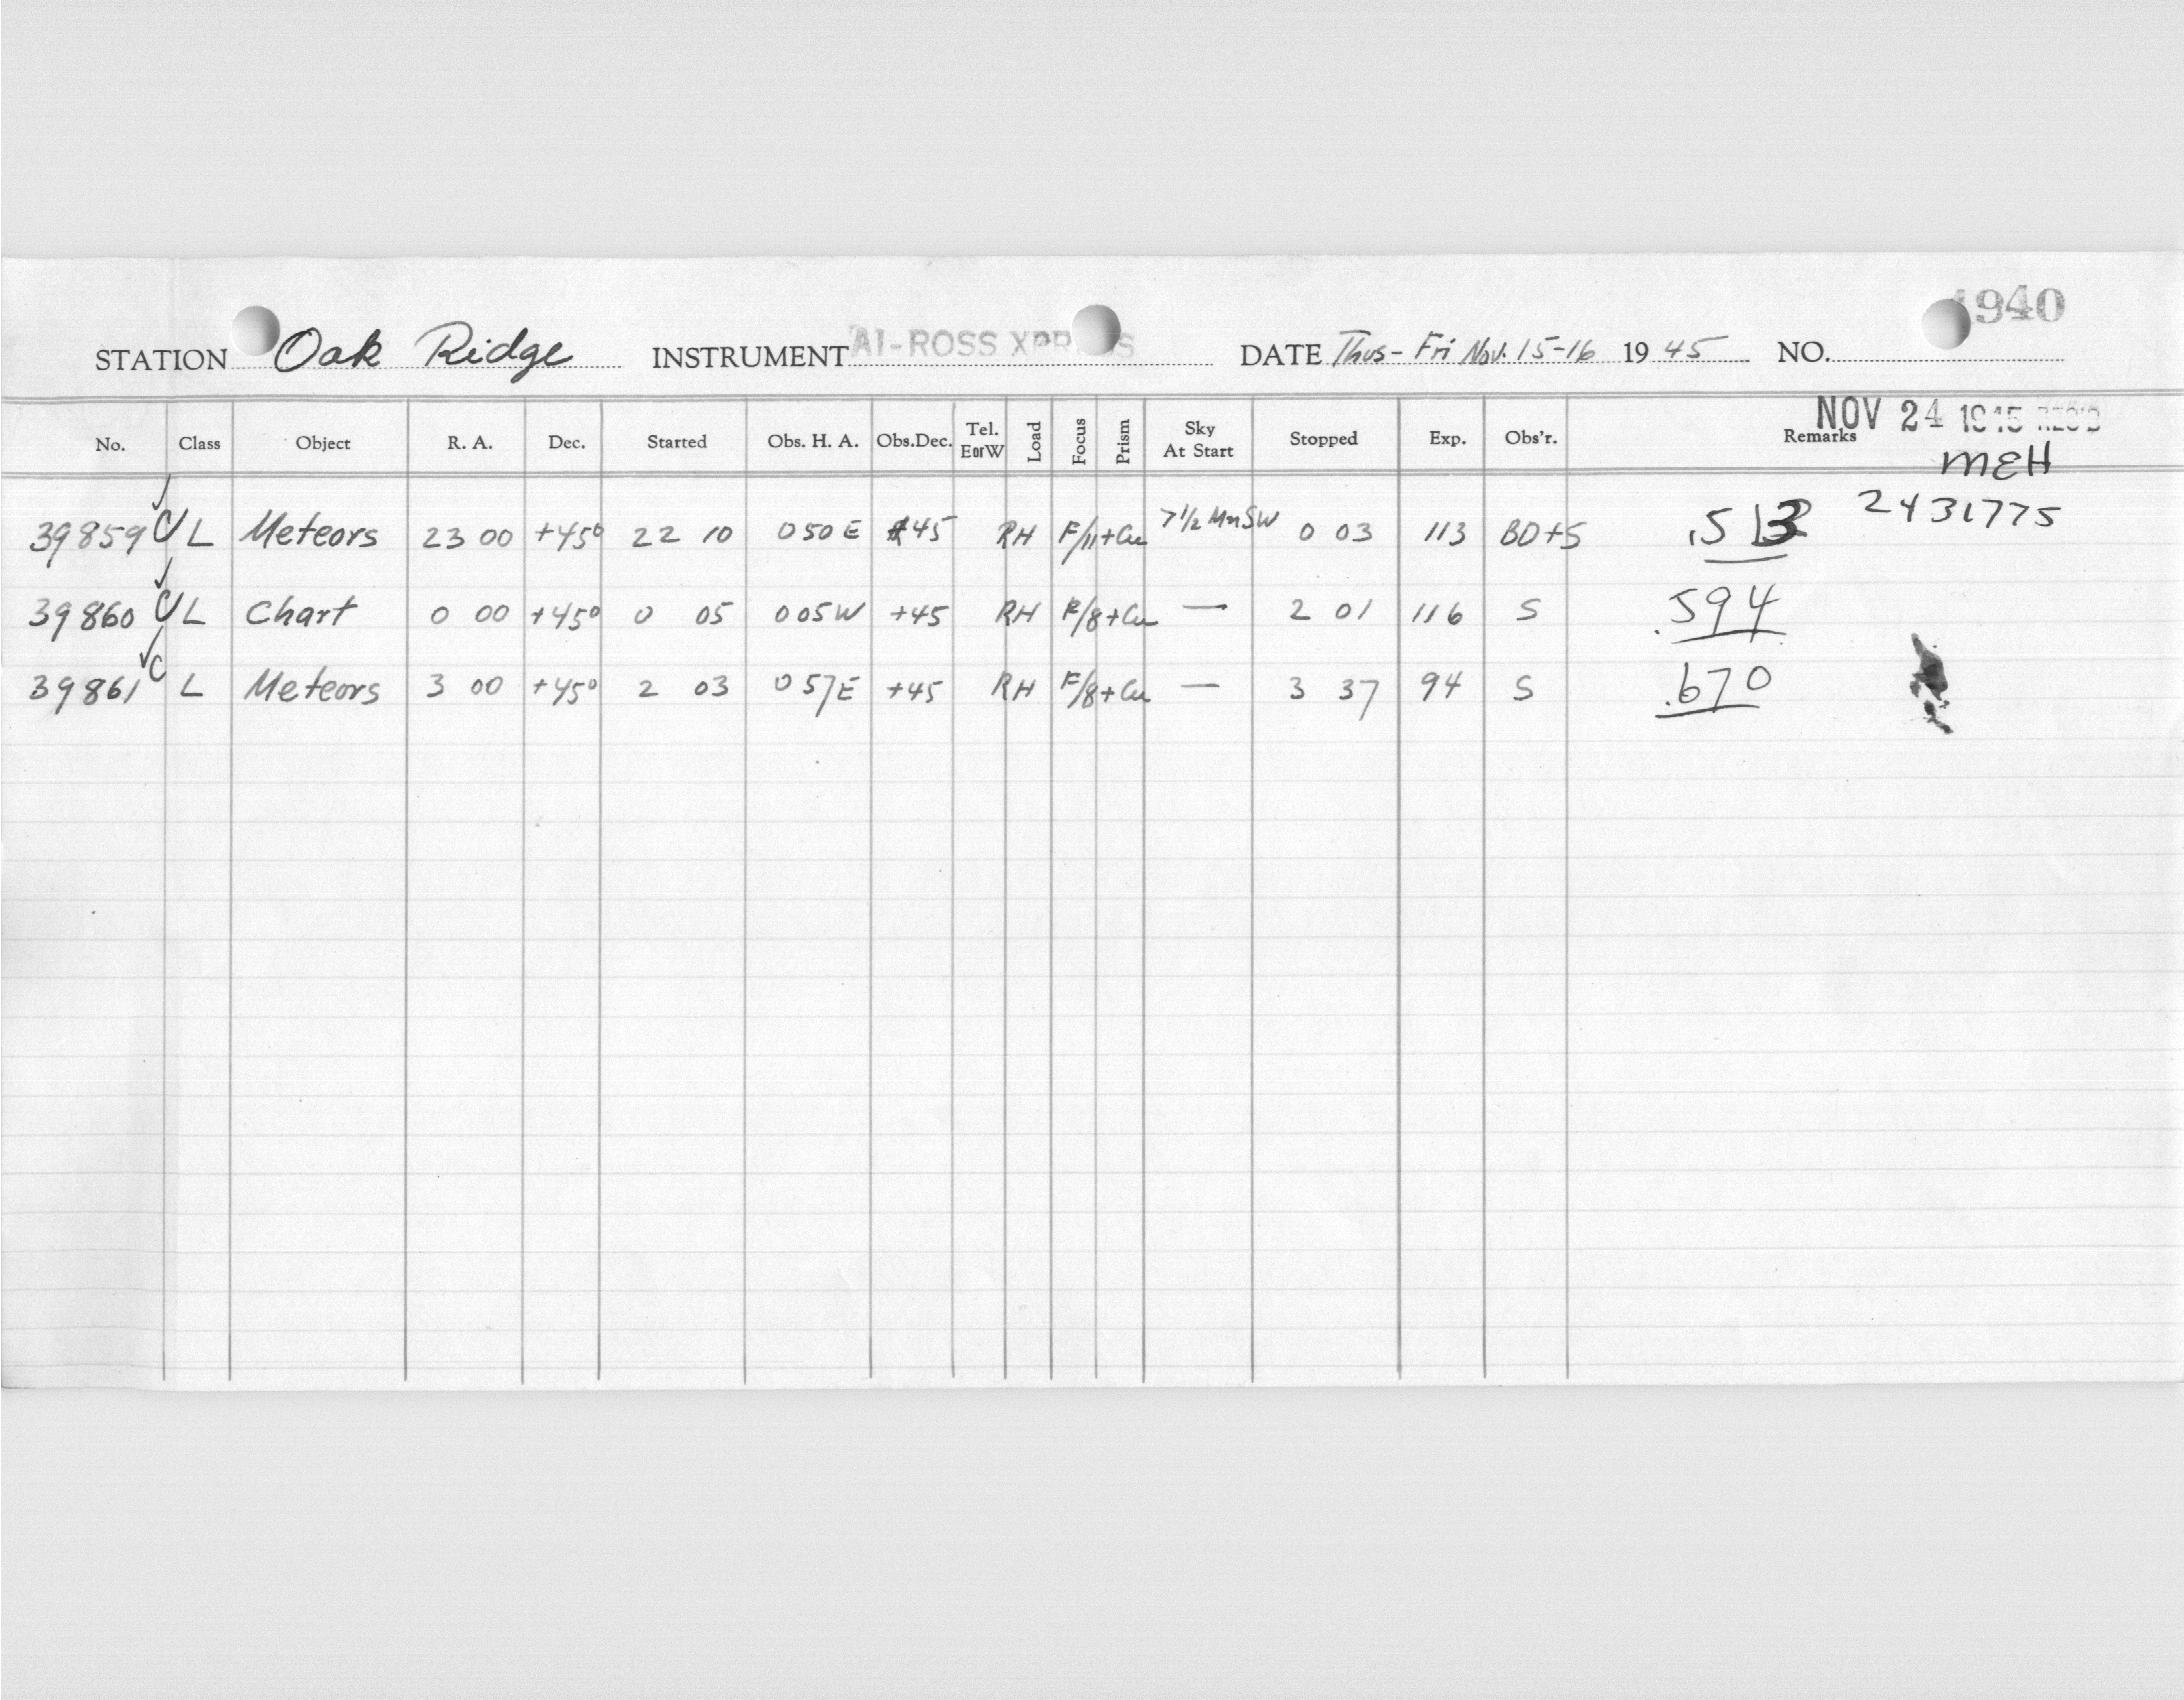 1940
STATION Oak Ridge INSTRUMENT AI-ROSS XPRESS DATE Thus-Fri Nov. 15-16 1945 NO.
NOV 24 1945 REC'D
No. Class Object R. A. Dec. Started Obs. H. A. Obs.Dec. Tel. E or W Load Focus Prism Sky At Start Stopped Exp. Obs'r. Remarks
MEH
39859 C L Meteors 23 00 +45° 22 10 0 50 E +45 RH F/11 +Cu 7 1/2 Mn SW 0 03 113 BD+S .513 2431775
39860 C L Chart 0 00 +45° 0 05 0 05 W +45 RH F/8 +Cu — 2 01 116 S .594
39861 C L Meteors 3 00 +45° 2 03 0 57 E +45 RH F/8 +Cu — 3 37 94 S .670